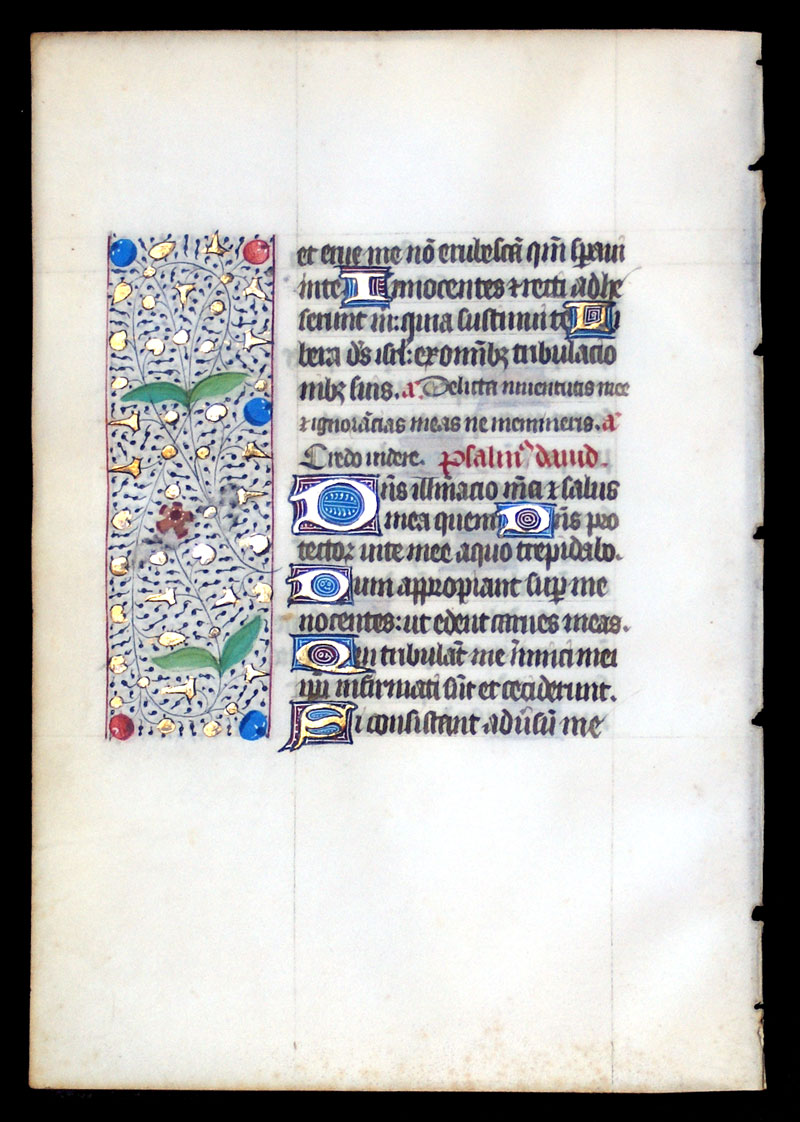 et erue me nō erubescā qm̄ speraui
in te Innocentes ⁊ recti adhe
serunt m̄: quia sustinui te Li
bera ds̄ isrl̄: ex om̄ibꝫ tribulacio
nibꝫ suis. a͛ Delicta iuuentutis mee
⁊ ignorācias meas ne memineris. a͛
Credo videre. Psalmꝰ dauid.
Dn̄s illūinacio m̄ea ⁊ salus
mea quem timebo Dn̄s pro
tector uite mee a quo trepidabo.
Dum appropiant suꝑ me
nocentes: ut edent carnes meas.
Qui tribulāt me inimici mei
ip̄i infirmati sūt et ceciderunt.
Si consistant aduersū me